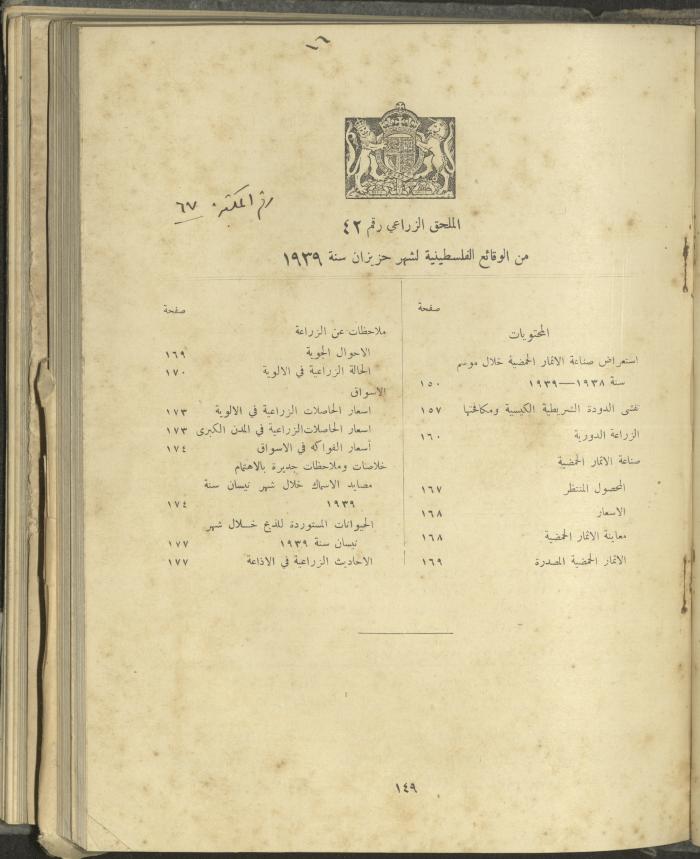 ١٦
رقم المكتبة ٦٧
الملحق الزراعي رقم ٤٢
من الوقائع الفلسطينية لشهر حزيران سنة ١٩٣٩
صفحة
المحتويات
استعراض صناعة الاثمار الحمضية خلال موسم
سنة ١٩٣٨—١٩٣٩ ١٥٠
تفشى الدودة الشريطية الكيسية ومكافحتها ١٥٧
الزراعة الدورية ١٦٠
صناعة الاثمار الحمضية
المحصول المنتظر ١٦٧
الاسعار ١٦٨
معاينة الاثمار الحمضية ١٦٨
الاثمار الحمضية المصدرة ١٦٩
صفحة
ملاحظات عن الزراعة
الاحوال الجوية ١٦٩
الحالة الزراعية في الالوية ١٧٠
الاسواق
اسعار الحاصلات الزراعية في الالوية ١٧٣
اسعار الحاصلات الزراعية في المدن الكبرى ١٧٣
أسعار الفواكه في الاسواق ١٧٤
خلاصات وملاحظات جديرة بالاهتمام
مصايد الاسماك خلال شهر نيسان سنة
١٩٣٩ ١٧٤
الحيوانات المستوردة للذبح خلال شهر
نيسان سنة ١٩٣٩ ١٧٧
الاحاديث الزراعية في الاذاعة ١٧٧
١٤٩